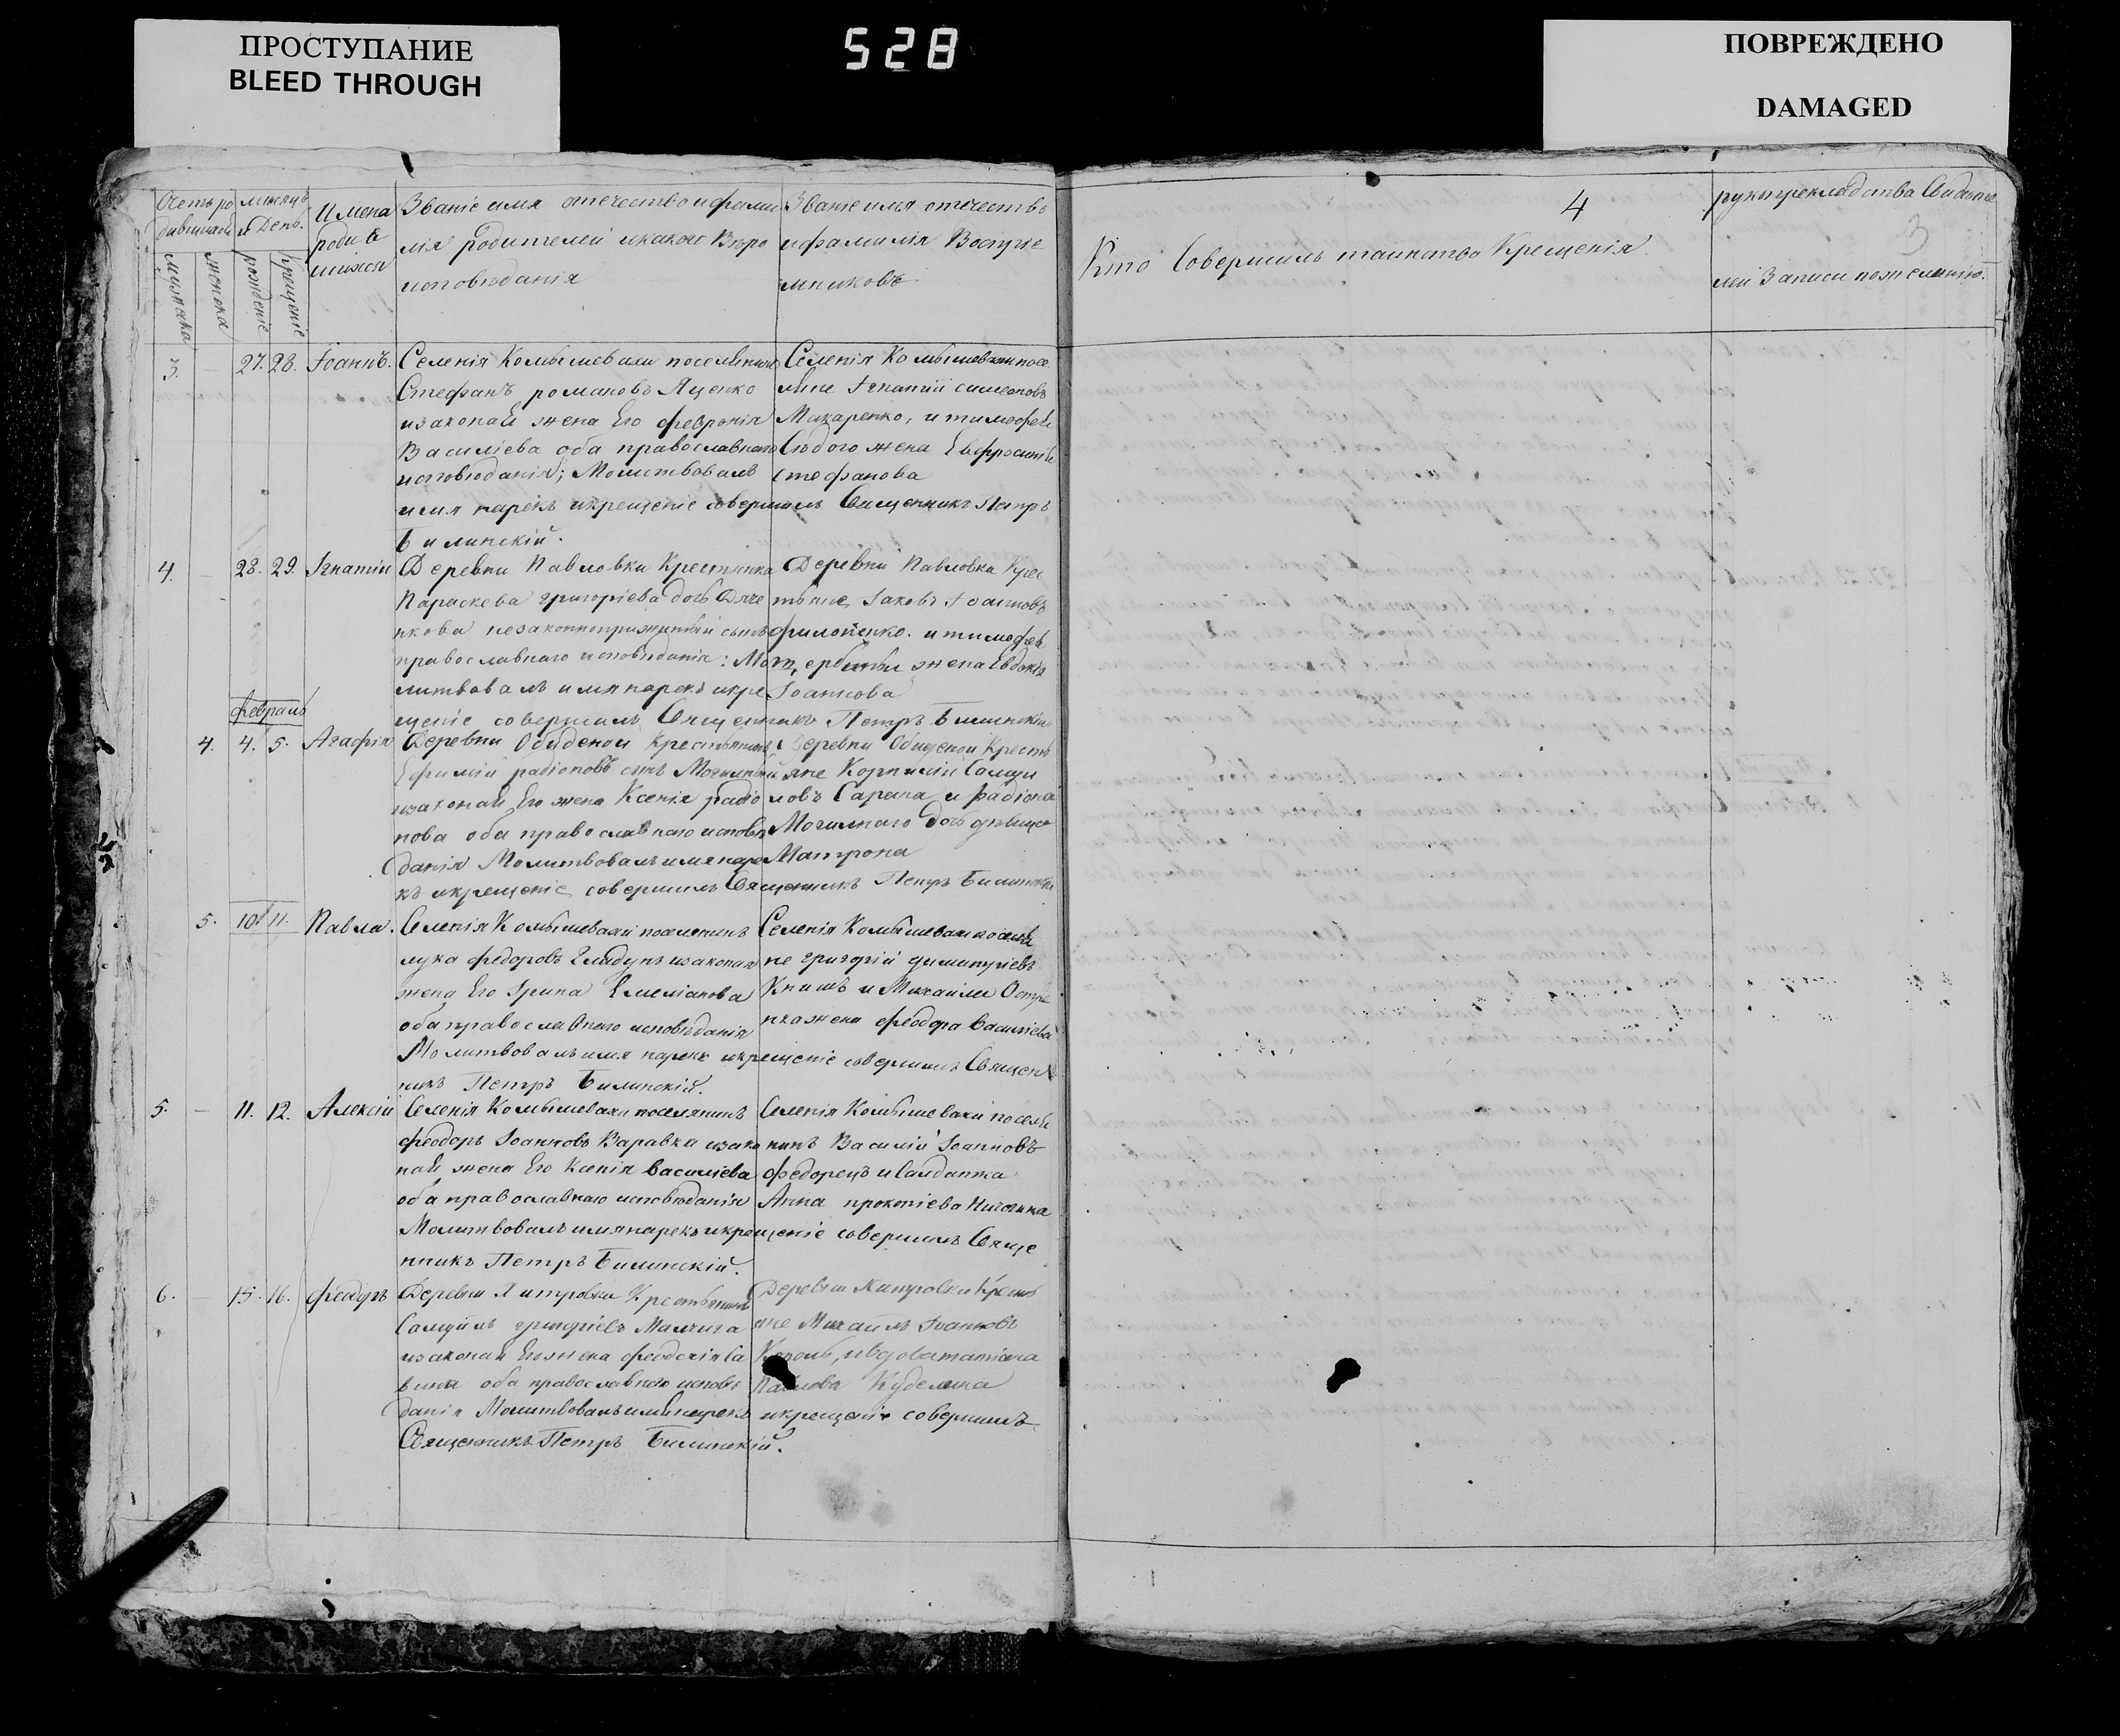 ПРОСТУПАНИЕ
BLEED THROUGH
528
ПОВРЕЖДЕНО
DAMAGED
Счетъ ро
дившихся
мужеска
женска
мѣсяцъ
и День.
рожденіе
крещеніе
Имена
роди
вшихся
Званіе имя отечество и фами
лія родителей и какого Вѣро
исповѣданія
Званіе имя отечество
и фамилія Воспріе
мниковъ
4
Кто Совершилъ таинство Крещенія
рукоприкладства Свидѣте
лей Записи по желанію.
3
3. 27. 28. Іоаннъ.
Селенія Комышевахи поселянинъ
Стефанъ романовъ Яценко
и законая жена Его феvронія
Василіева оба православнаго
исповѣданія; Молитвовалъ
имя нарекъ и крещеніе совершилъ Священникъ Петръ
Билинскій.
Селенія Комышевахи посе
ляне Игнатій симеоновъ
Макаренко, и тимофея
жена Евфросинія
стефанова
4. 28. 29. Игнатій
Деревни Павловки Крестьянка
Параскева григоріева дочь Дяче
нкова незаконноприжитый сынъ
православнаго исповѣданія: Мо
литвовалъ имя нарекъ и кре
щеніе совершилъ Священникъ Петръ Билинскій
Деревни Павловки Крес
тьяне Іаковъ Іоанновъ
филоненко. и тимофея
жена Евдокія
Іоаннова
февраль
4. 4. 5. Агафія
Деревни Обиденой Крестьянинъ
Ефимій радіоновъ сынъ Могилный
и законая Его жена Ксенія радіо
нова оба православнаго исповѣ
данія Молитвовалъ имя наре
къ и крещеніе совершилъ Священникъ Петръ Билинскій
Деревни Обиденой Кресть
яне Корнилій Самуи
ловъ Сарана и радіона
Могилнаго дочь дѣвица
Матрона
5. 10. 11. Павла.
Селенія Комышевахи поселянинъ
лука федоровъ Гладунъ и законая
жена Его Ирина Емеліанова
оба православнаго исповѣданія
Молитвовалъ имя нарекъ и крещеніе совершилъ Священ
никъ Петръ Билинскій.
Селенія Комышевахи поселя
не григорій димитріевъ
Книшъ и Михаила
жена феодора Василіева
5. 11. 12. Алексій
Селенія Комышевахи поселянинъ
феодоръ Іоанновъ Варавка и зако
ная жена Его Ксенія Василіева
оба православнаго исповѣданія
Молитвовалъ имя нарекъ и крещеніе совершилъ Свяще
нникъ Петръ Билинскій.
Селенія Комышевахи поселя
нинъ Василій Іоанновъ
федорецъ и Салдатка
Анна прокопіева
6. 15. 16. феодоръ
Деревни Хитровки Крестьянинъ
Самуилъ григоріевъ Малчига
и законая Его жена феодосія Са
вина оба православнаго исповѣ
данія Молитвовалъ имя нарекъ и крещеніе совершилъ
Священникъ Петръ Билинскій.
Деревни Хитровки Кресть
яне Михаилъ Іоанновъ
и вдова татіана
Павлова Куделина